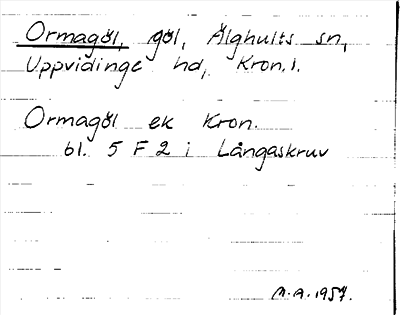 Ormagöl, göl, Älghults sn,
Uppvidinge hd, Kron. l.
Ormagöl ek Kron.
bl. 5 F 2 i Långaskruv
M.A. 1957.